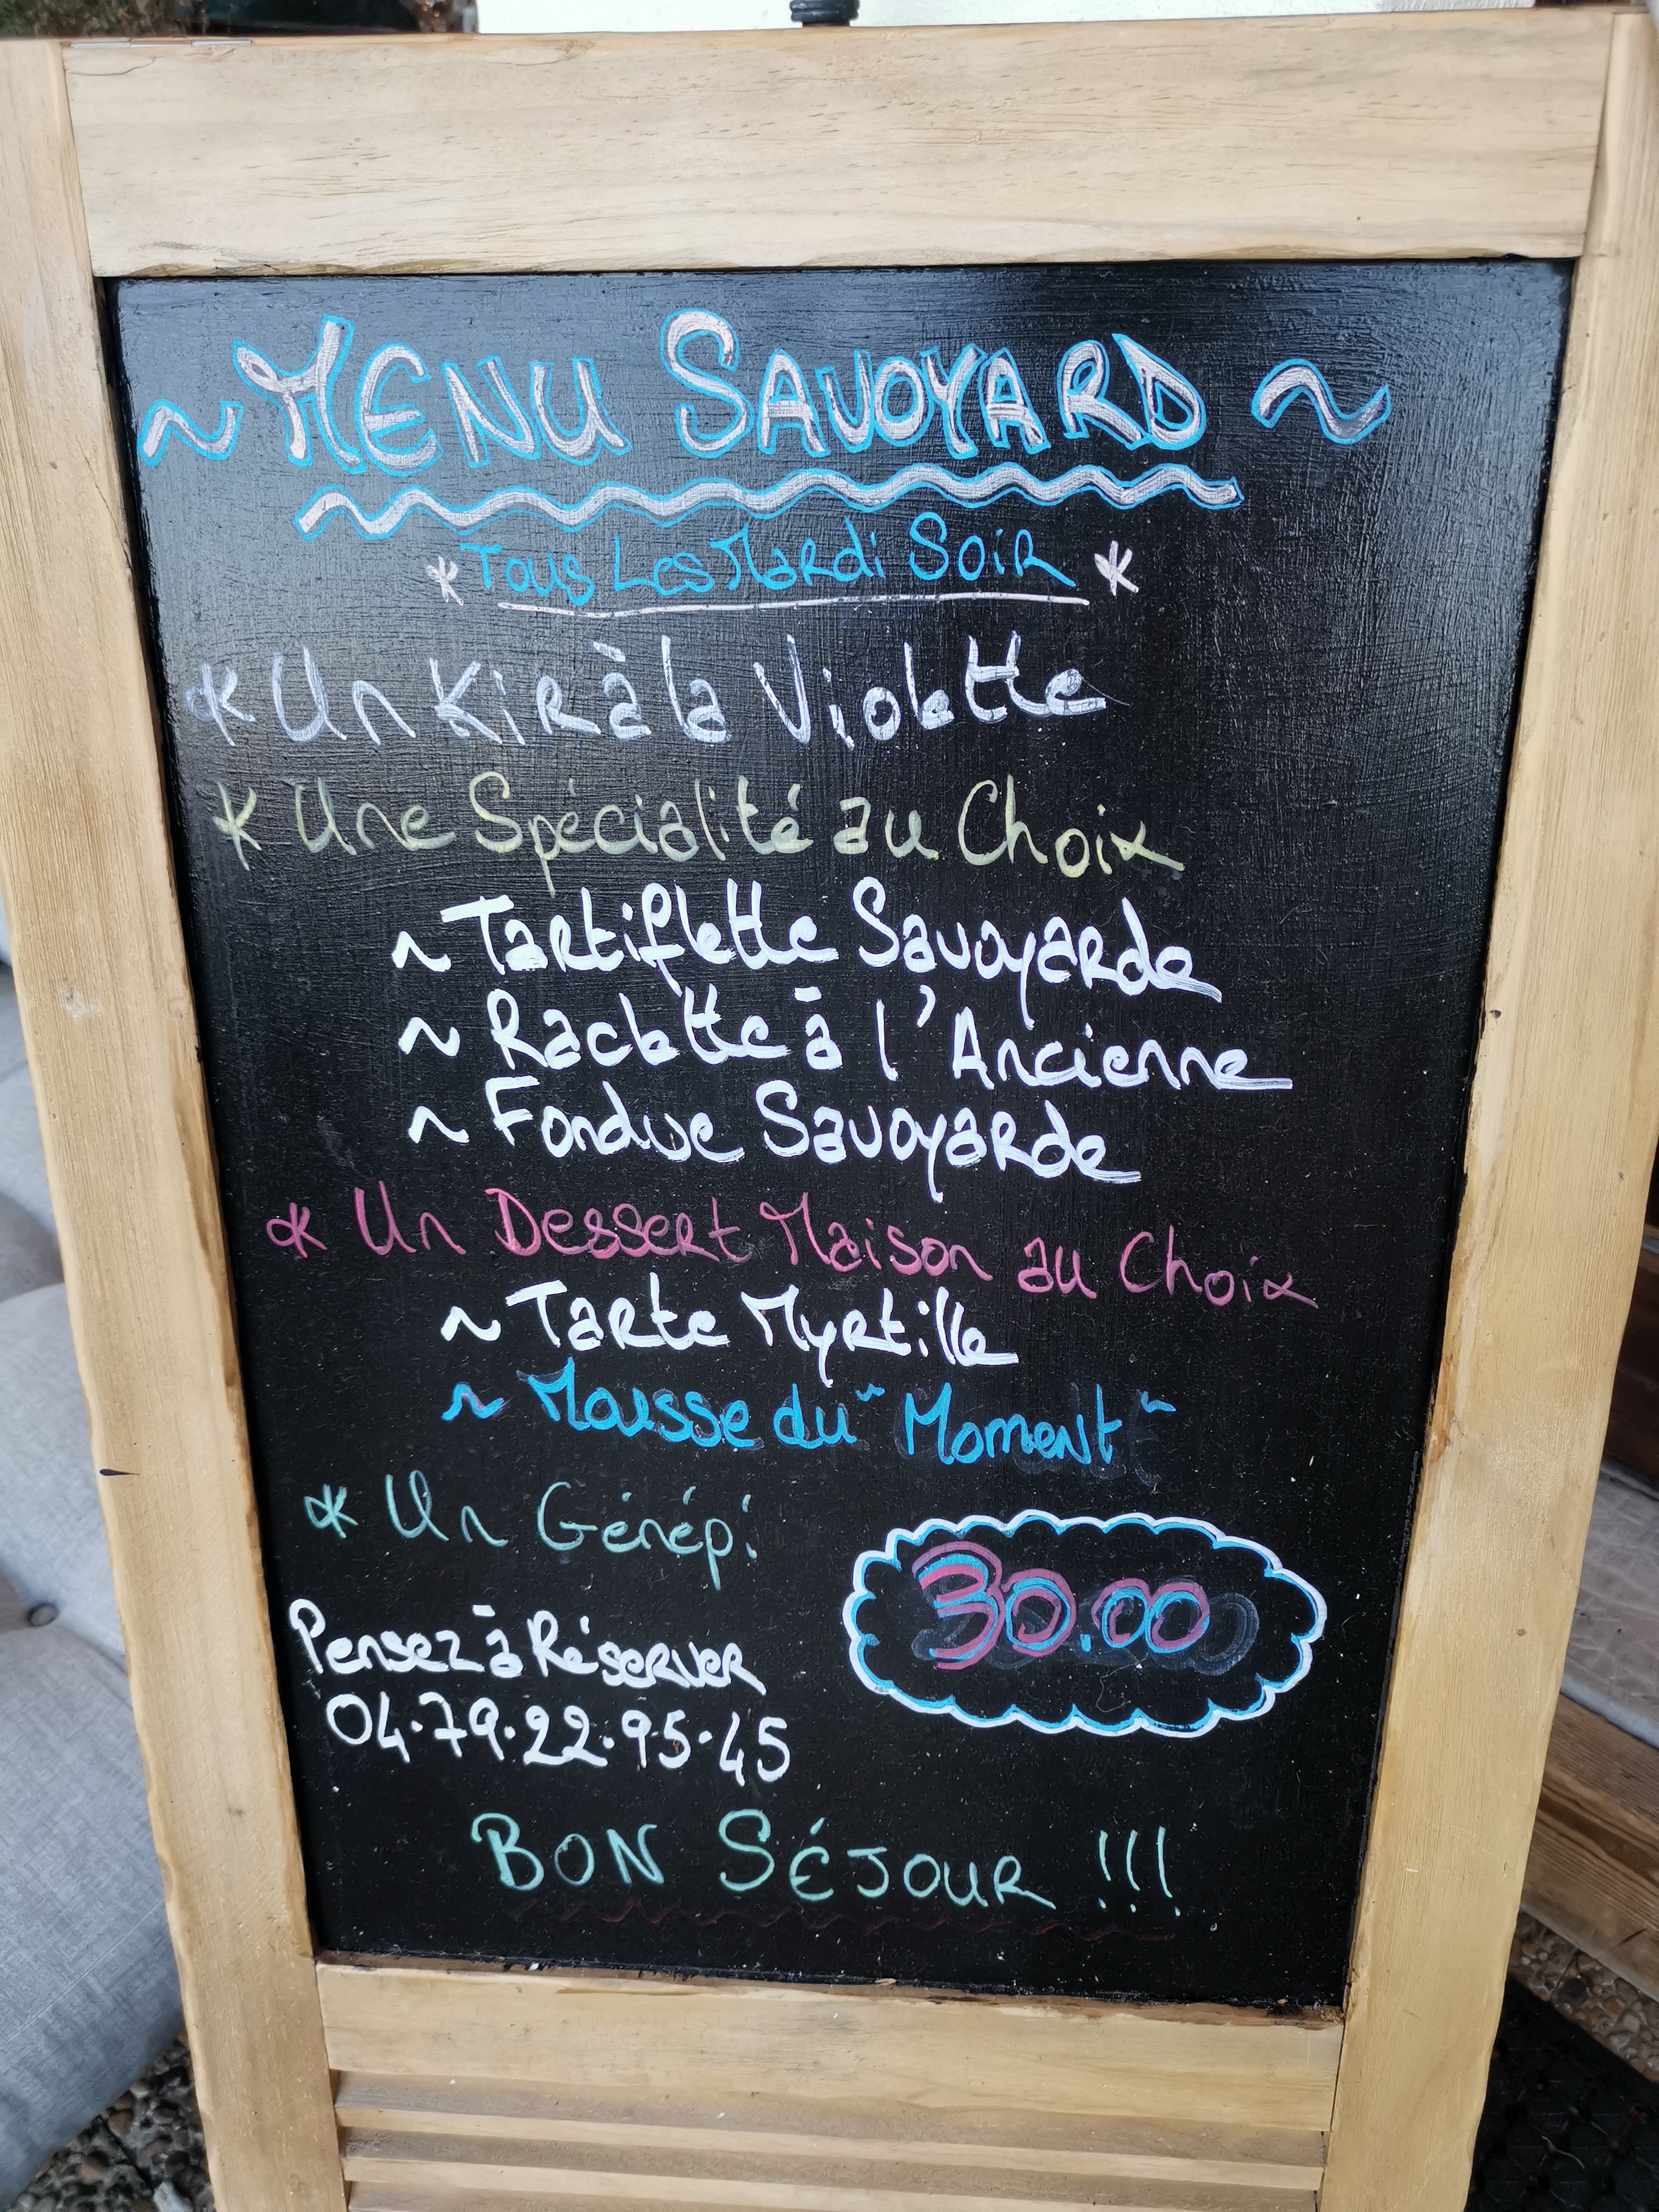 ~ MENU SAVOYARD ~
* Tous Les Mardi Soir *
* Un Kir à la Violette
* Une Spécialité au Choix
~ Tartiflette Savoyarde
~ Raclette à l'Ancienne
~ Fondue Savoyarde
* Un Dessert Maison au Choix
~ Tarte Myrtille
~ Mousse du "Moment"
* Un Génépi
30.00
Pensez à Réserver
04.79.22.95.45
BON SÉJOUR !!!